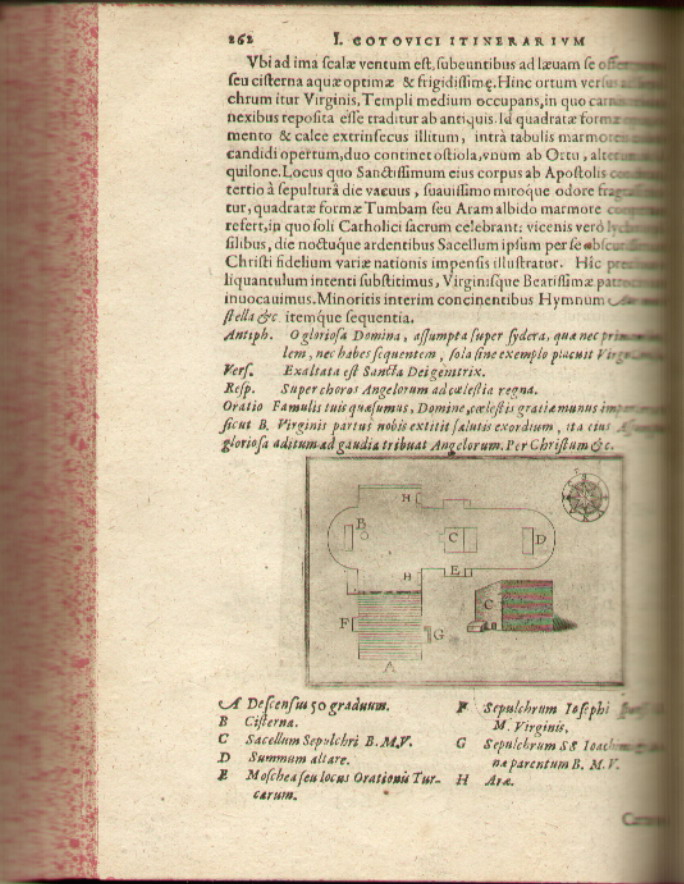 262 I. COTOVICI ITINERARIVM
Vbi ad ima scalæ ventum est, subeuntibus ad læuam se
seu cisterna aquæ optimæ & frigidissimę. Hinc ortum versus
chrum itur Virginis, Templi medium occupans, in quo
nexibus reposita esse traditur ab antiquis. Id quadratæ formæ
mento & calce extrinsecus illitum, intrà tabulis marmoreis
candidi opertum, duo continet ostiola, vnum ab Ortu, alterum
quilone. Locus quo Sanctissimum eius corpus ab Apostolis
tertio à sepulturâ die vacuus, suauissimo miroque odore
tur, quadratæ formæ Tumbam seu Aram albido marmore
refert, in quo soli Catholici sacrum celebrant: vicenis verò
silibus, die noctuque ardentibus Sacellum ipsum per se obscur
Christi fidelium variæ nationis impensis illustratur. Hîc
liquantulum intenti substitimus, Virginisque Beatissimæ
inuocauimus. Minoritis interim concinentibus Hymnum
stella &c. itemque sequentia.
Antiph. O gloriosa Domina, assumpta super sydera, quæ nec
lem, nec habes sequentem, sola sine exemplo placuit
Vers. Exaltata est Sancta Dei genitrix.
Resp. Super choros Angelorum ad cœlestia regna.
Oratio Famulis tuis quæsumus, Domine, cœlestis gratiæ munus
sicut B. Virginis partus nobis extitit salutis exordium, ita eius
gloriosa aditum ad gaudia tribuat Angelorum. Per Christum &c.
H
B
C
D
H
E
F
G
C
A
A Descensus 50 graduum.
B Cisterna.
C Sacellum Sepulchri B. M. V.
D Summum altare.
E Moschea seu locus Orationis Tur-
carum.
F Sepulchrum Iosephi
M. Virginis.
G Sepulchrum SS Ioach
næ parentum B. M. V.
H Aræ.